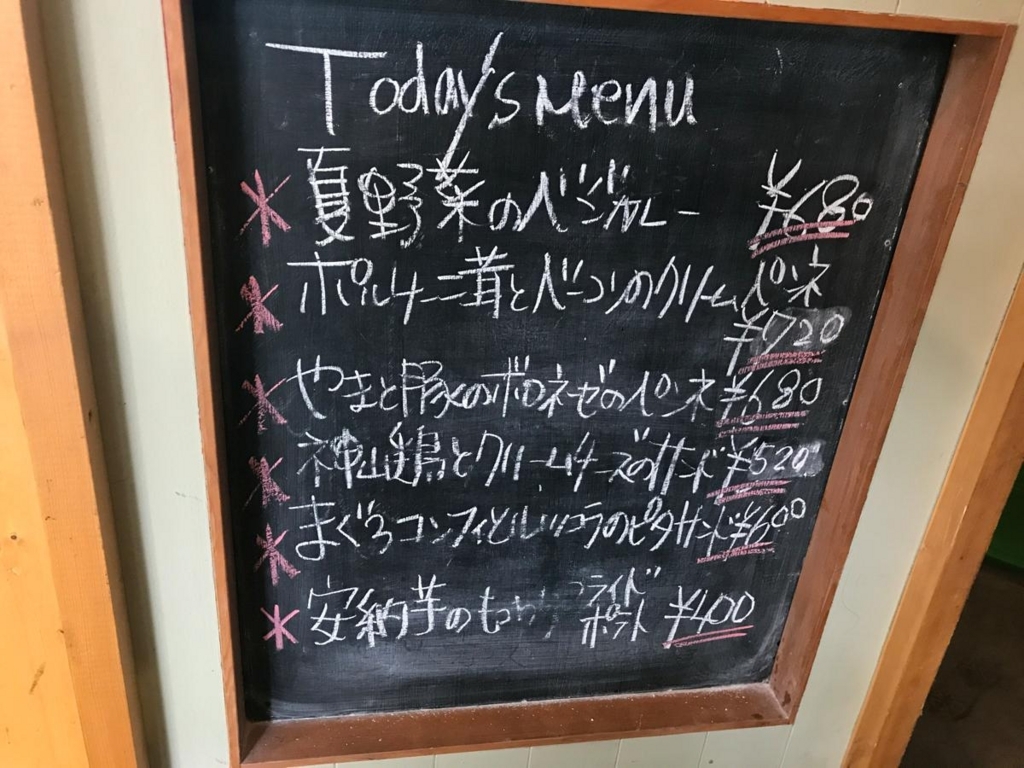 Today's Menu
* 夏野菜のベジカレー ¥680
* ポルチーニ茸とベーコンのクリームペンネ
¥720
* やまと豚のボロネーゼのペンネ ¥680
* 神山鶏とクリームチーズのサンド ¥520
* まぐろコンフィとルッコラのピタサンド ¥600
* 安納芋の フライド
ポテト ¥400